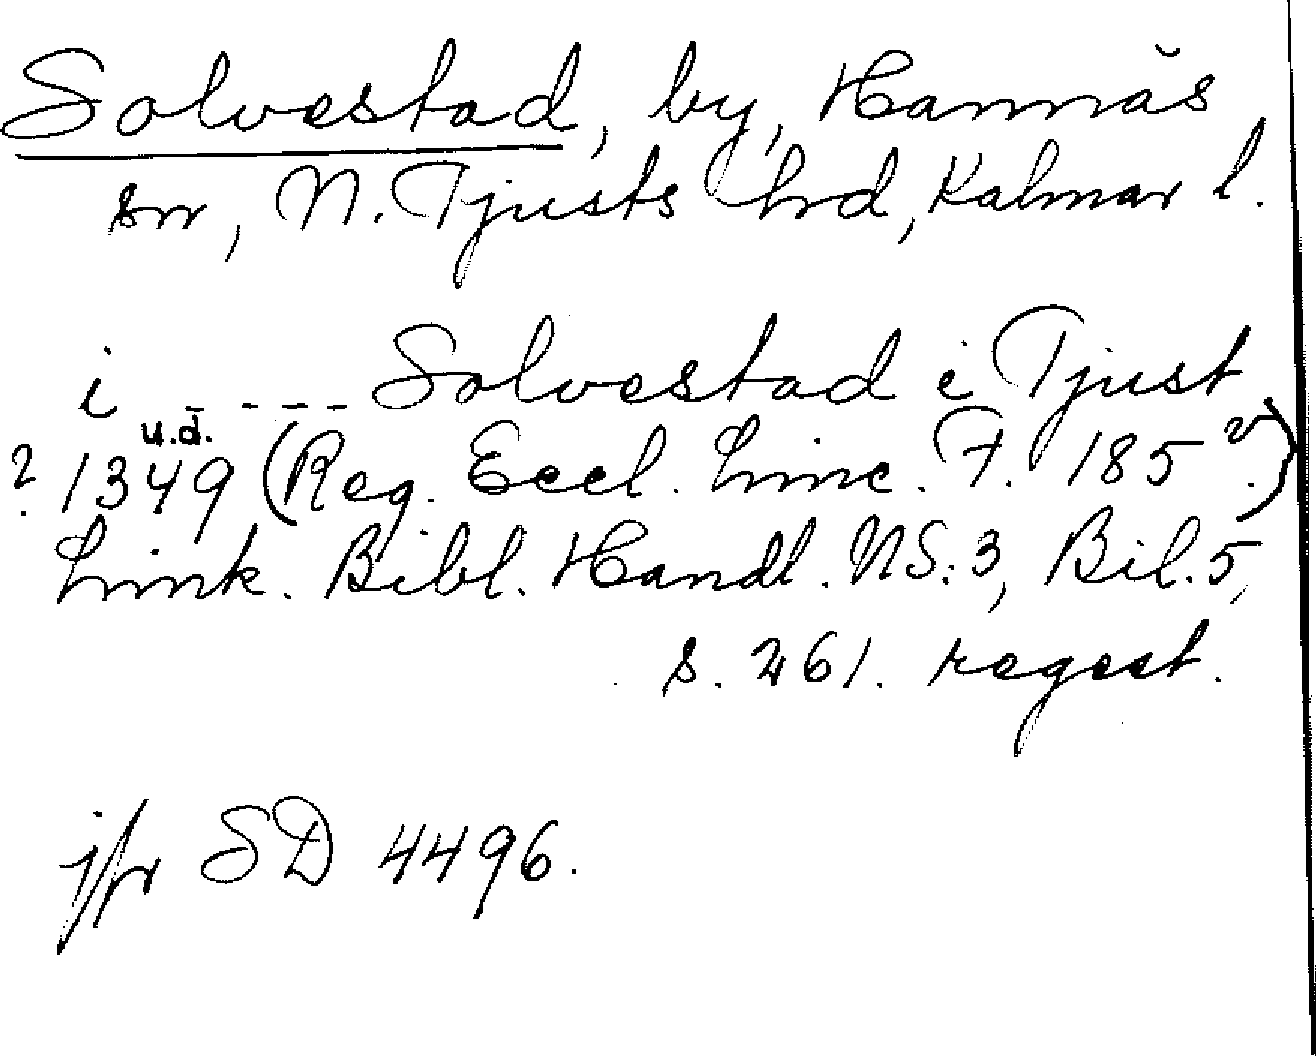 Solvestad, by, Hannäs
sn, N. Tjusts hrd, Kalmar l.
i ----- Solvestad i Tjust
u.d.
? 1349 (Reg. Eccl. Linc. F. 185 v.)
Link. Bibl. Handl. NS. 3, Bil. 5,
s. 261. regest.
jfr SD 4496.